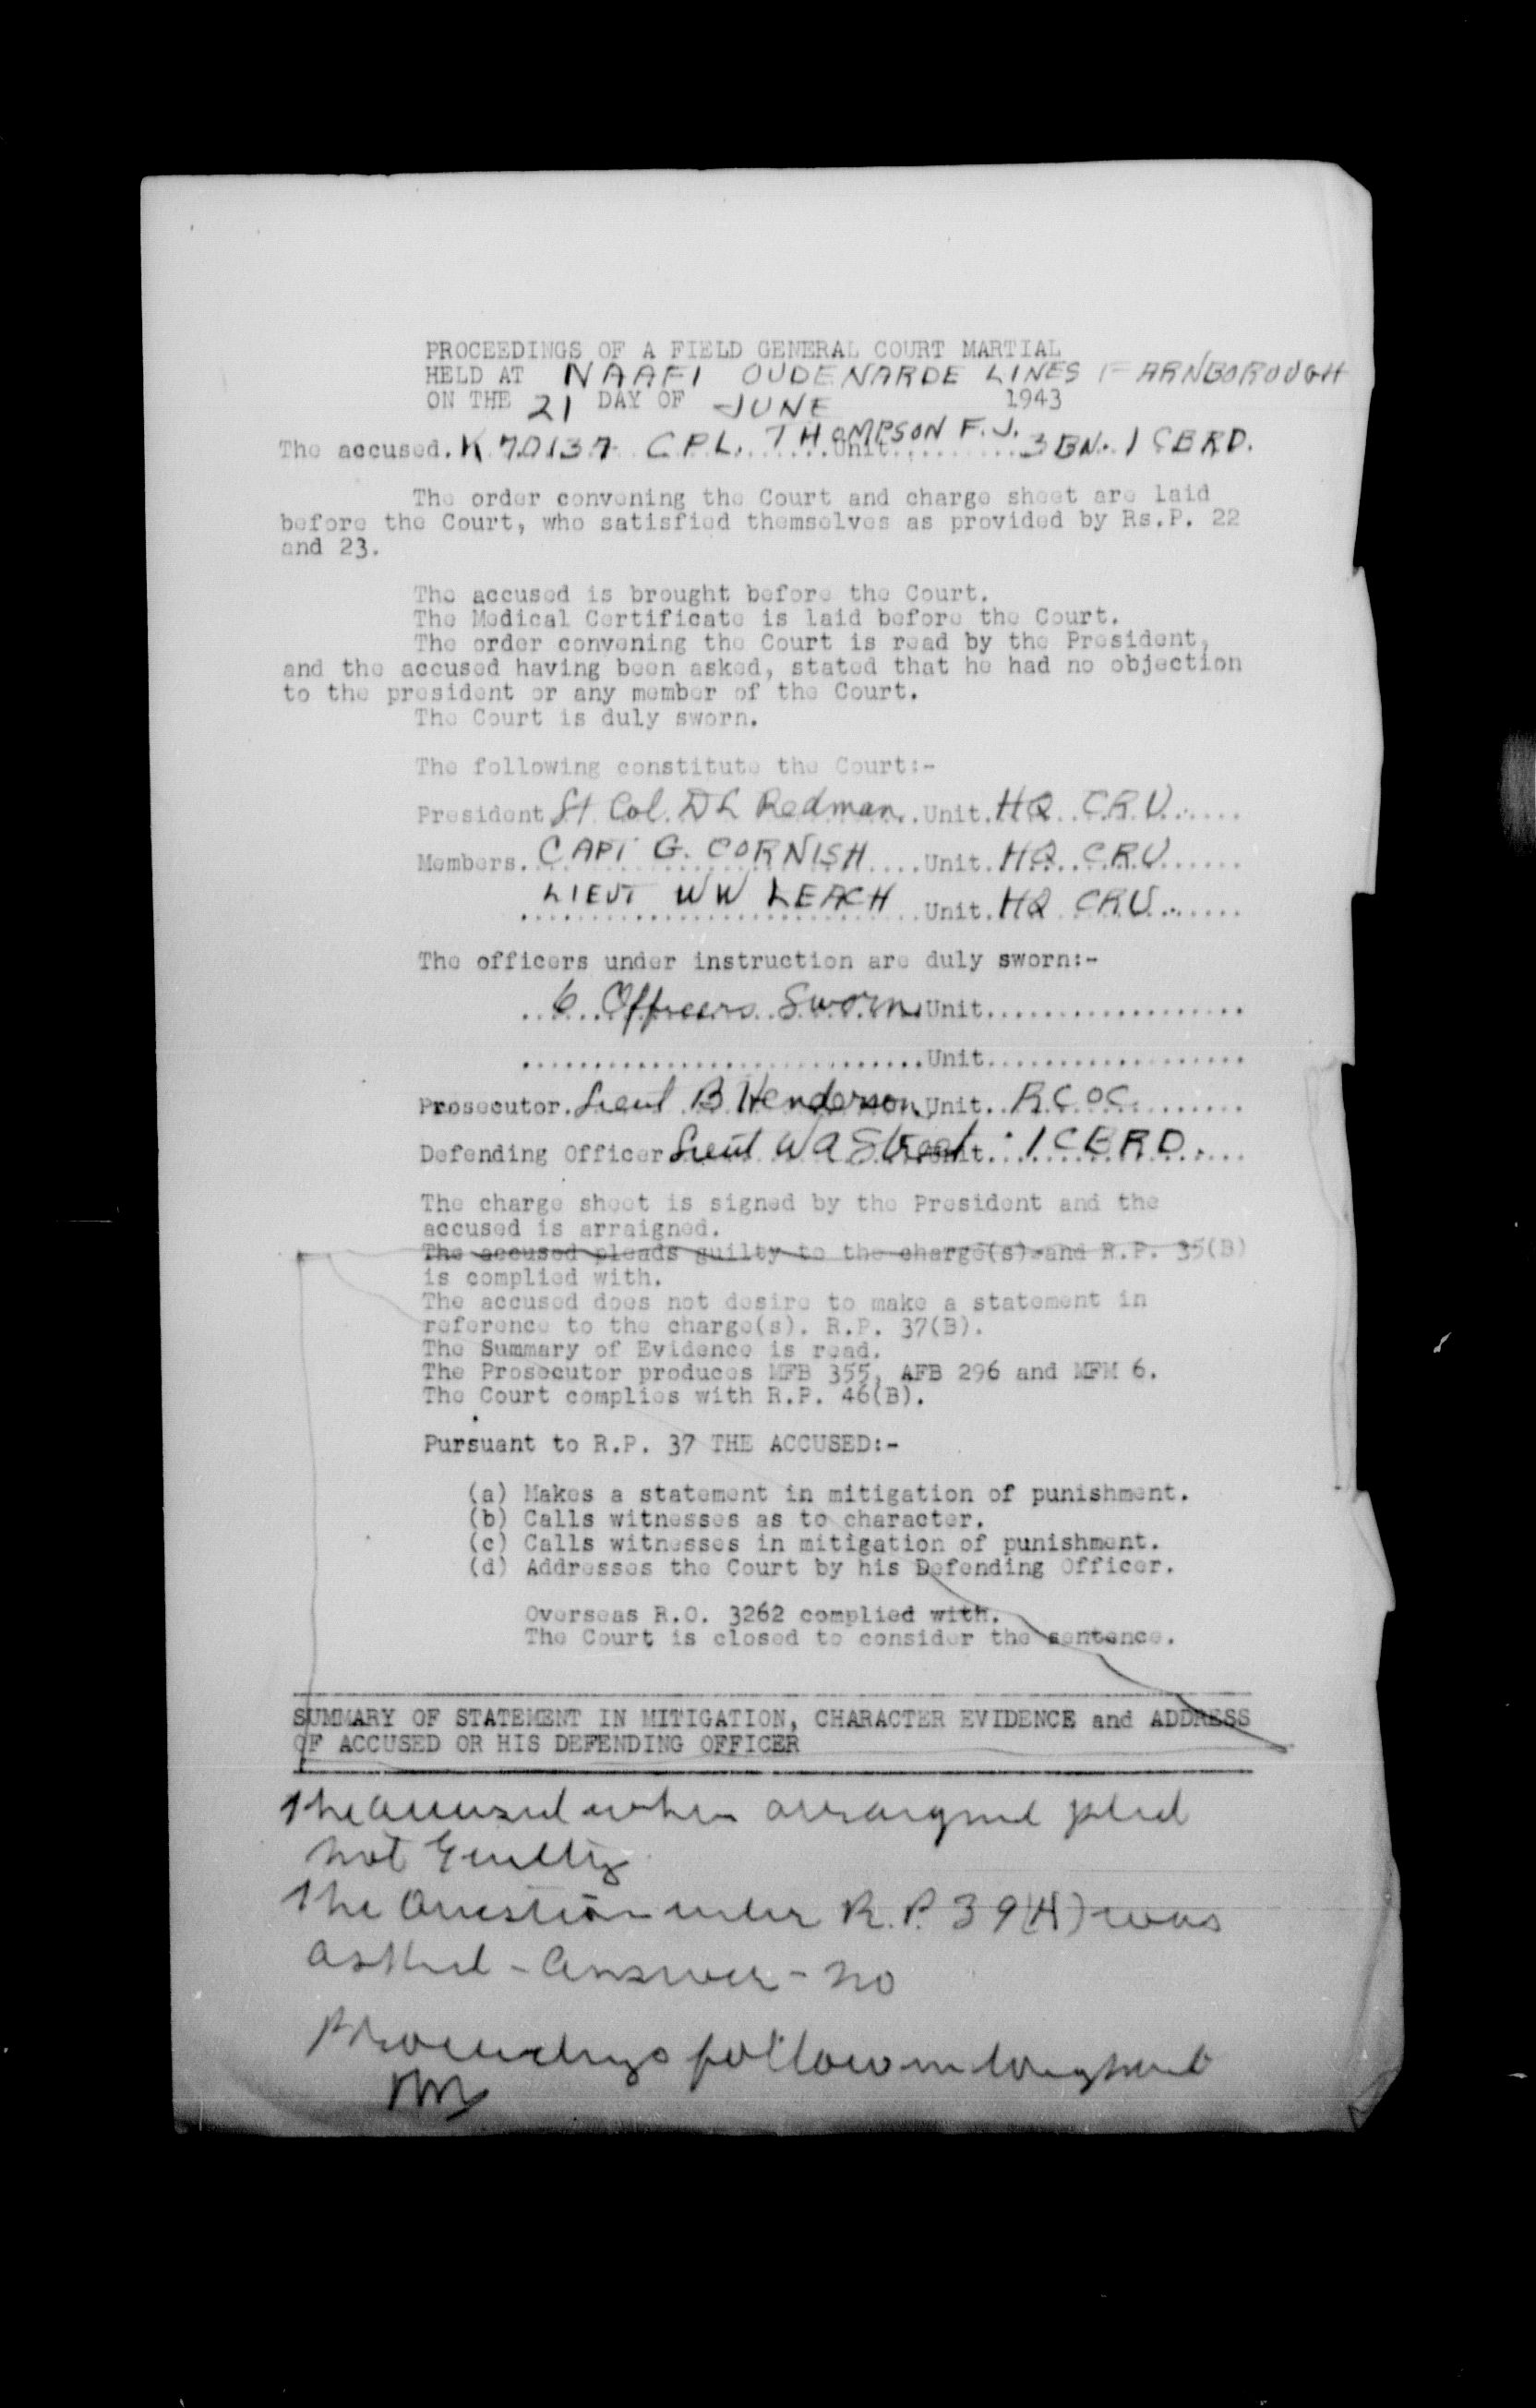 PROCEEDINGS OF A FIELD GENERAL COURT MARTIAL
HELD AT NAAFI OUDENARDE LINES FARNBOROUGH
ON THE 21 DAY OF JUNE 1943
The accused. K 70137 CPL. THOMPSON F.J. Unit 3 BN. 1 CBRD.
The order convening the Court and charge sheet are laid
before the Court, who satisfied themselves as provided by Rs.P. 22
and 23.
The accused is brought before the Court.
The Medical Certificate is laid before the Court.
The order convening the Court is read by the President,
and the accused having been asked, stated that he had no objection
to the president or any member of the Court.
The Court is duly sworn.
The following constitute the Court:-
President Lt Col. D L Redman Unit. HQ CRU
Members. CAPT G. CORNISH Unit. HQ CRU
LIEUT WW LEACH Unit. HQ CRU
The officers under instruction are duly sworn:-
6 Officers Sworn Unit
Unit
Prosecutor. Lieut B Henderson Unit. RCOC
Defending Officer Lieut W A Street Unit. 1 CBRD.
The charge sheet is signed by the President and the
accused is arraigned.
The accused pleads guilty to the charge(s) and R.P. 35(B)
is complied with.
The accused does not desire to make a statement in
reference to the charge(s). R.P. 37(B).
The Summary of Evidence is read.
The Prosecutor produces MFB 355, AFB 296 and MFM 6.
The Court complies with R.P. 46(B).
Pursuant to R.P. 37 THE ACCUSED:-
(a) Makes a statement in mitigation of punishment.
(b) Calls witnesses as to character.
(c) Calls witnesses in mitigation of punishment.
(d) Addresses the Court by his Defending Officer.
Overseas R.O. 3262 complied with.
The Court is closed to consider the sentence.
SUMMARY OF STATEMENT IN MITIGATION, CHARACTER EVIDENCE and ADDRESS
OF ACCUSED OR HIS DEFENDING OFFICER
The accused when arraigned pled
not Guilty
The Question under R.P. 39(A) was
asked - Answer - no
Proceedings follow in longhand